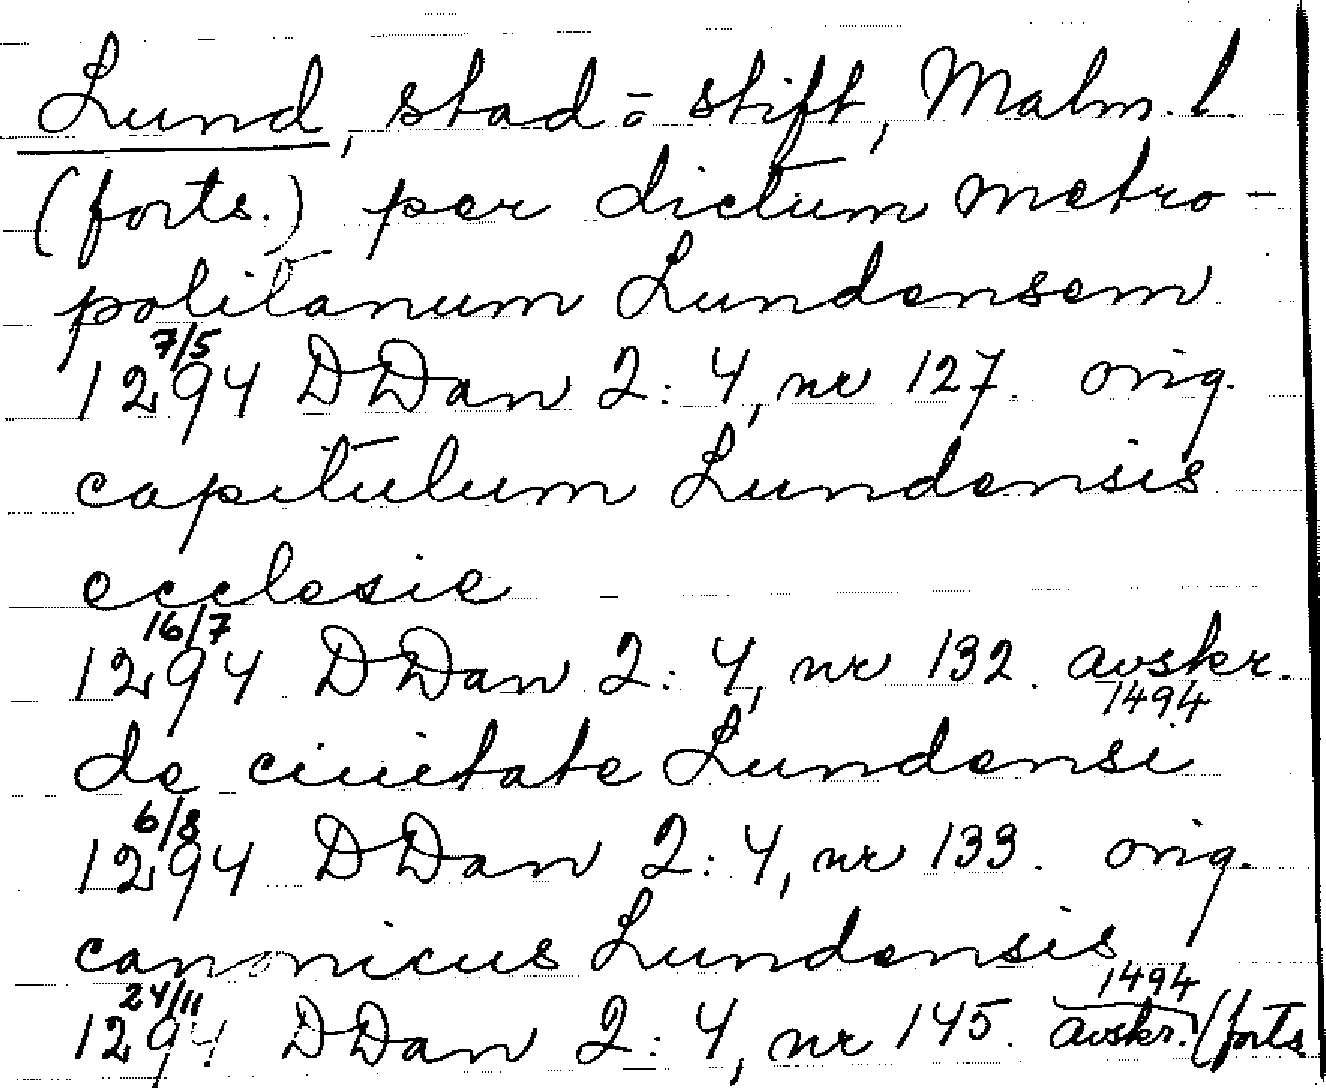 Lund, stad o. stift, Malm. l.
(forts.) per dictum metro-
politanum Lundensem
1294 7/5 DDan 2:4, nr 127. orig.
capitulum Lundensis
ecclesie
1294 16/7 DDan 2:4, nr 132. avskr. 1494
de ciuitate Lundensi
1294 6/8 DDan 2:4, nr 133. orig.
canonicus Lundensis
1294 24/11 DDan 2:4, nr 145. avskr. 1494 (forts